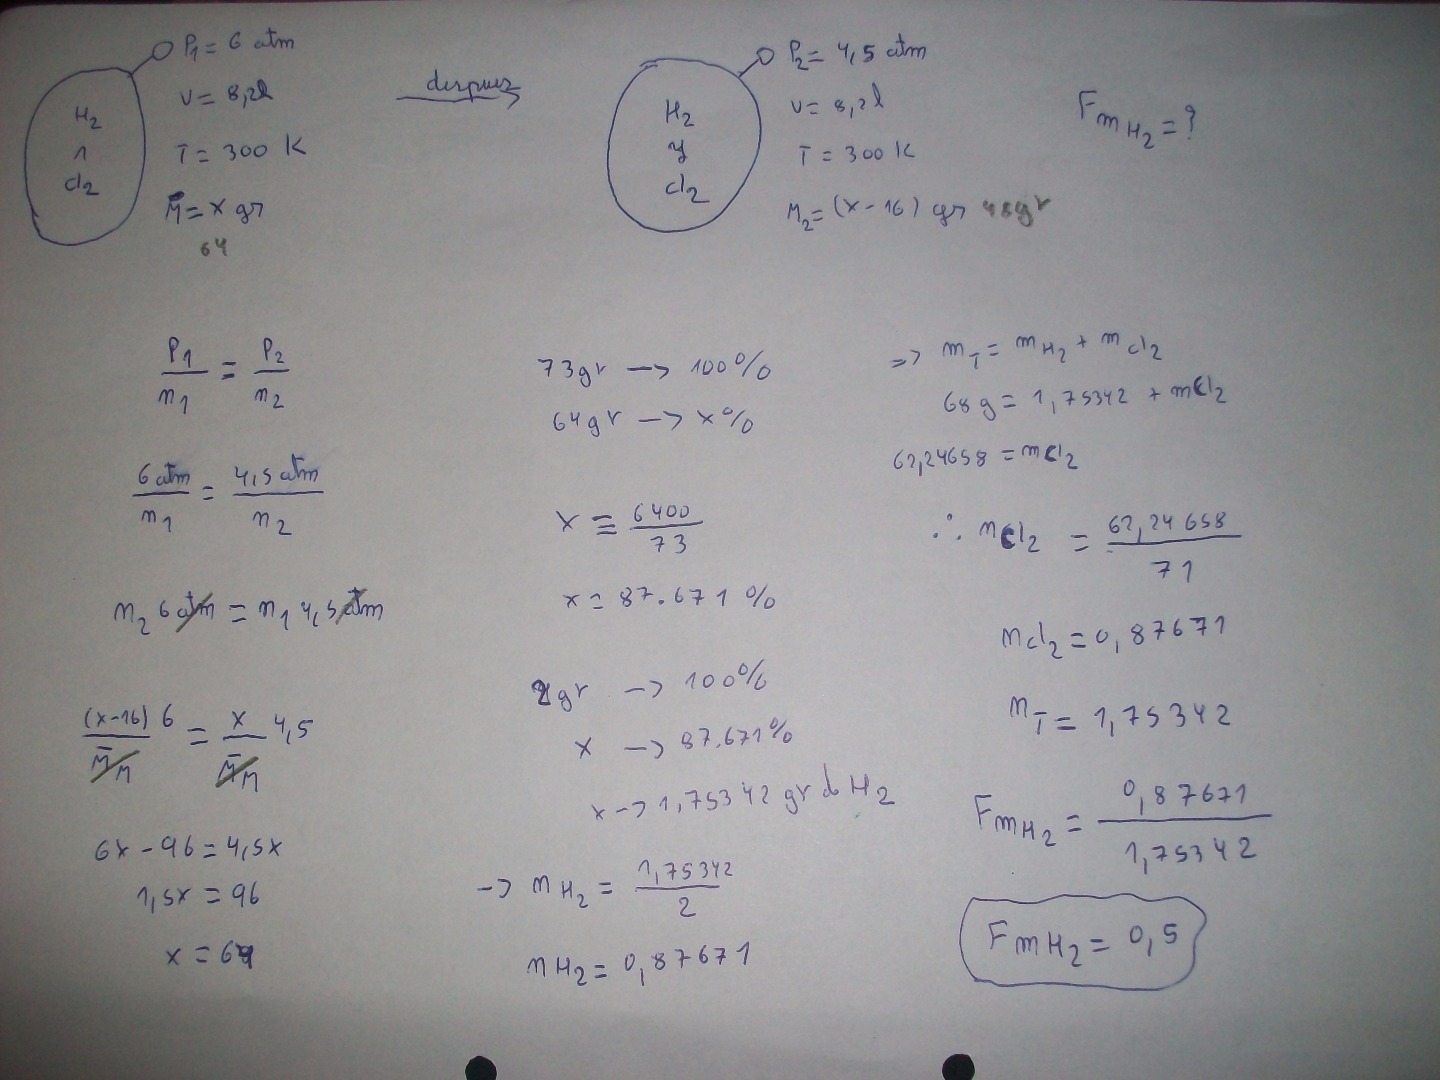 P1 = 6 atm
V = 8,2l
T = 300 K
M̄ = x gr
64
H2
1
cl2
despues
P2 = 4,5 atm
V = 8,2l
T = 300 K
M2 = (x-16) gr 48gr
H2
y
cl2
FmH2 = ?
P1/n1 = P2/n2
6 atm/n1 = 4,5 atm/n2
n2 6 atm = n1 4,5 atm
(x-16) 6/M̄M = x 4,5/M̄M
6x - 96 = 4,5x
1,5x = 96
x = 64
73gr -> 100%
64gr -> x%
x = 6400/73
x = 87.671 %
2gr -> 100%
x -> 87.671%
x -> 1,75342 gr d H2
-> nH2 = 1,75342/2
nH2 = 0,87671
=> mT = mH2 + mcl2
68 g = 1,75342 + mCl2
62,24658 = mCl2
∴ nCl2 = 62,24658/71
ncl2 = 0,87671
nT = 1,75342
FmH2 = 0,87671/1,75342
FmH2 = 0,5